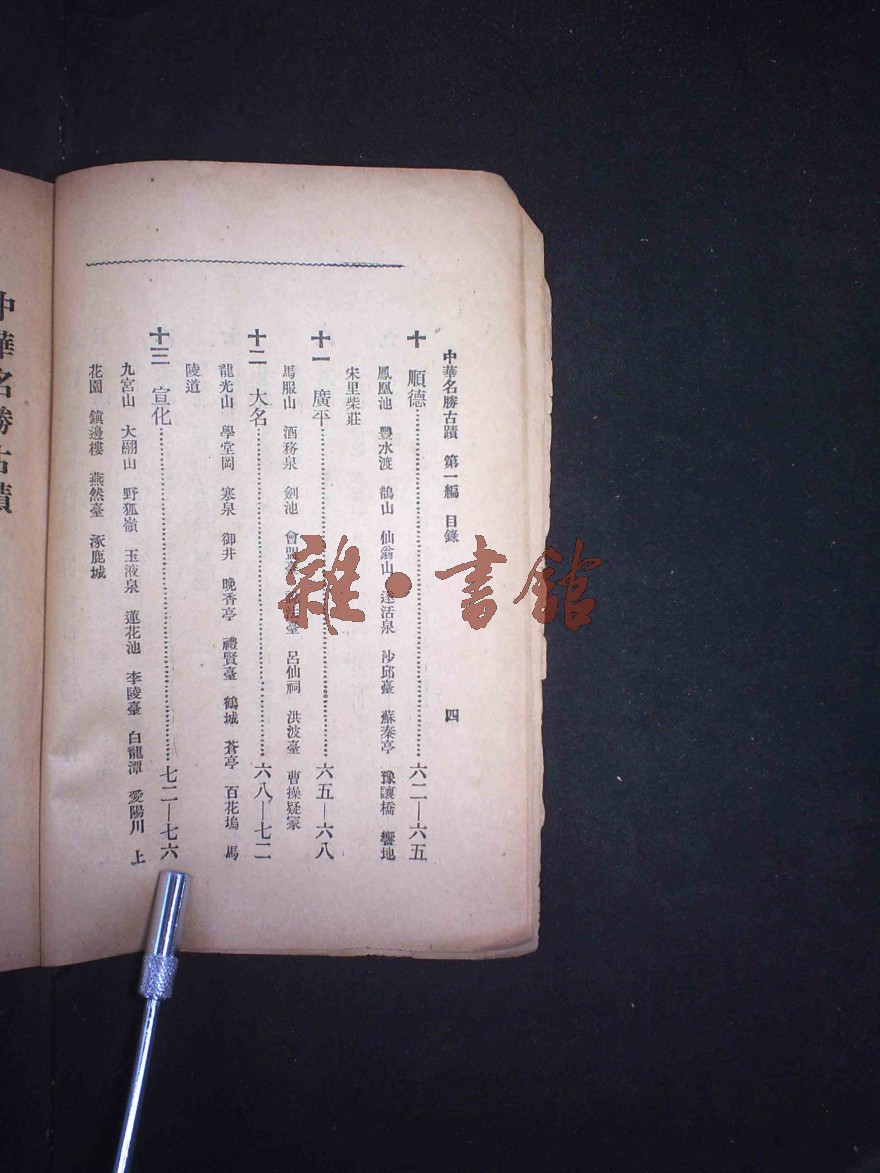 中華名勝古蹟 第一編 目錄 四
十 順德……六二—六五
鳳凰池 豐水渡 鵲山 仙翁山 達活泉 沙邱臺 蘇秦亭 豫讓橋 響地
宋里柴莊
十一 廣平……六五—六八
馬服山 酒務泉 劍池 會盟臺 臺 呂仙祠 洪波臺 曹操疑冢
十二 大名……六八—七二
龍光山 學堂岡 寒泉 御井 晚香亭 禮賢臺 鶴城 蒼亭 百花塢 馬
陵道
十三 宣化……七二—七六
九宮山 大翮山 野狐嶺 玉液泉 蓮花池 李陵臺 白龍潭 愛陽川 上
花園 鎮邊樓 燕然臺 涿鹿城
中華名勝古蹟
雜·書館